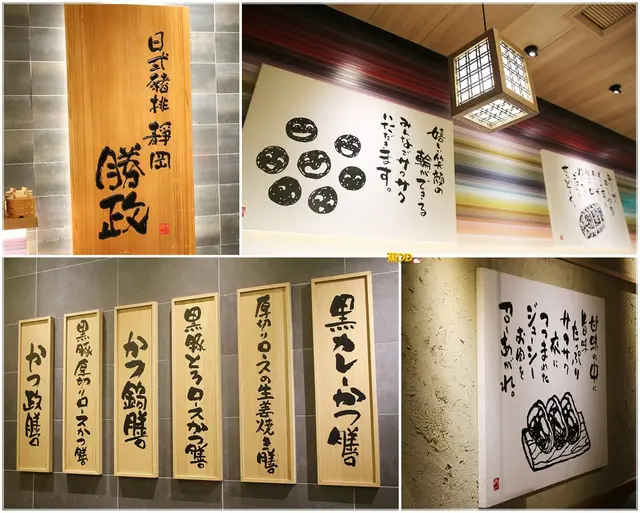 日式豬排
靜岡
勝政
嬉しい笑顔の
輪ができる
みんなでサクサク
いただきます。
かつ政膳
黒豚厚切りロースかつ膳
かつ鍋膳
黒豚とろロースかつ膳
厚切りロースの生姜焼き膳
黒カレーかつ膳
甘味の中に
旨味
たっぷり
サクサク
衣に
つつまれた
ジューシー
お肉を
召しあがれ。